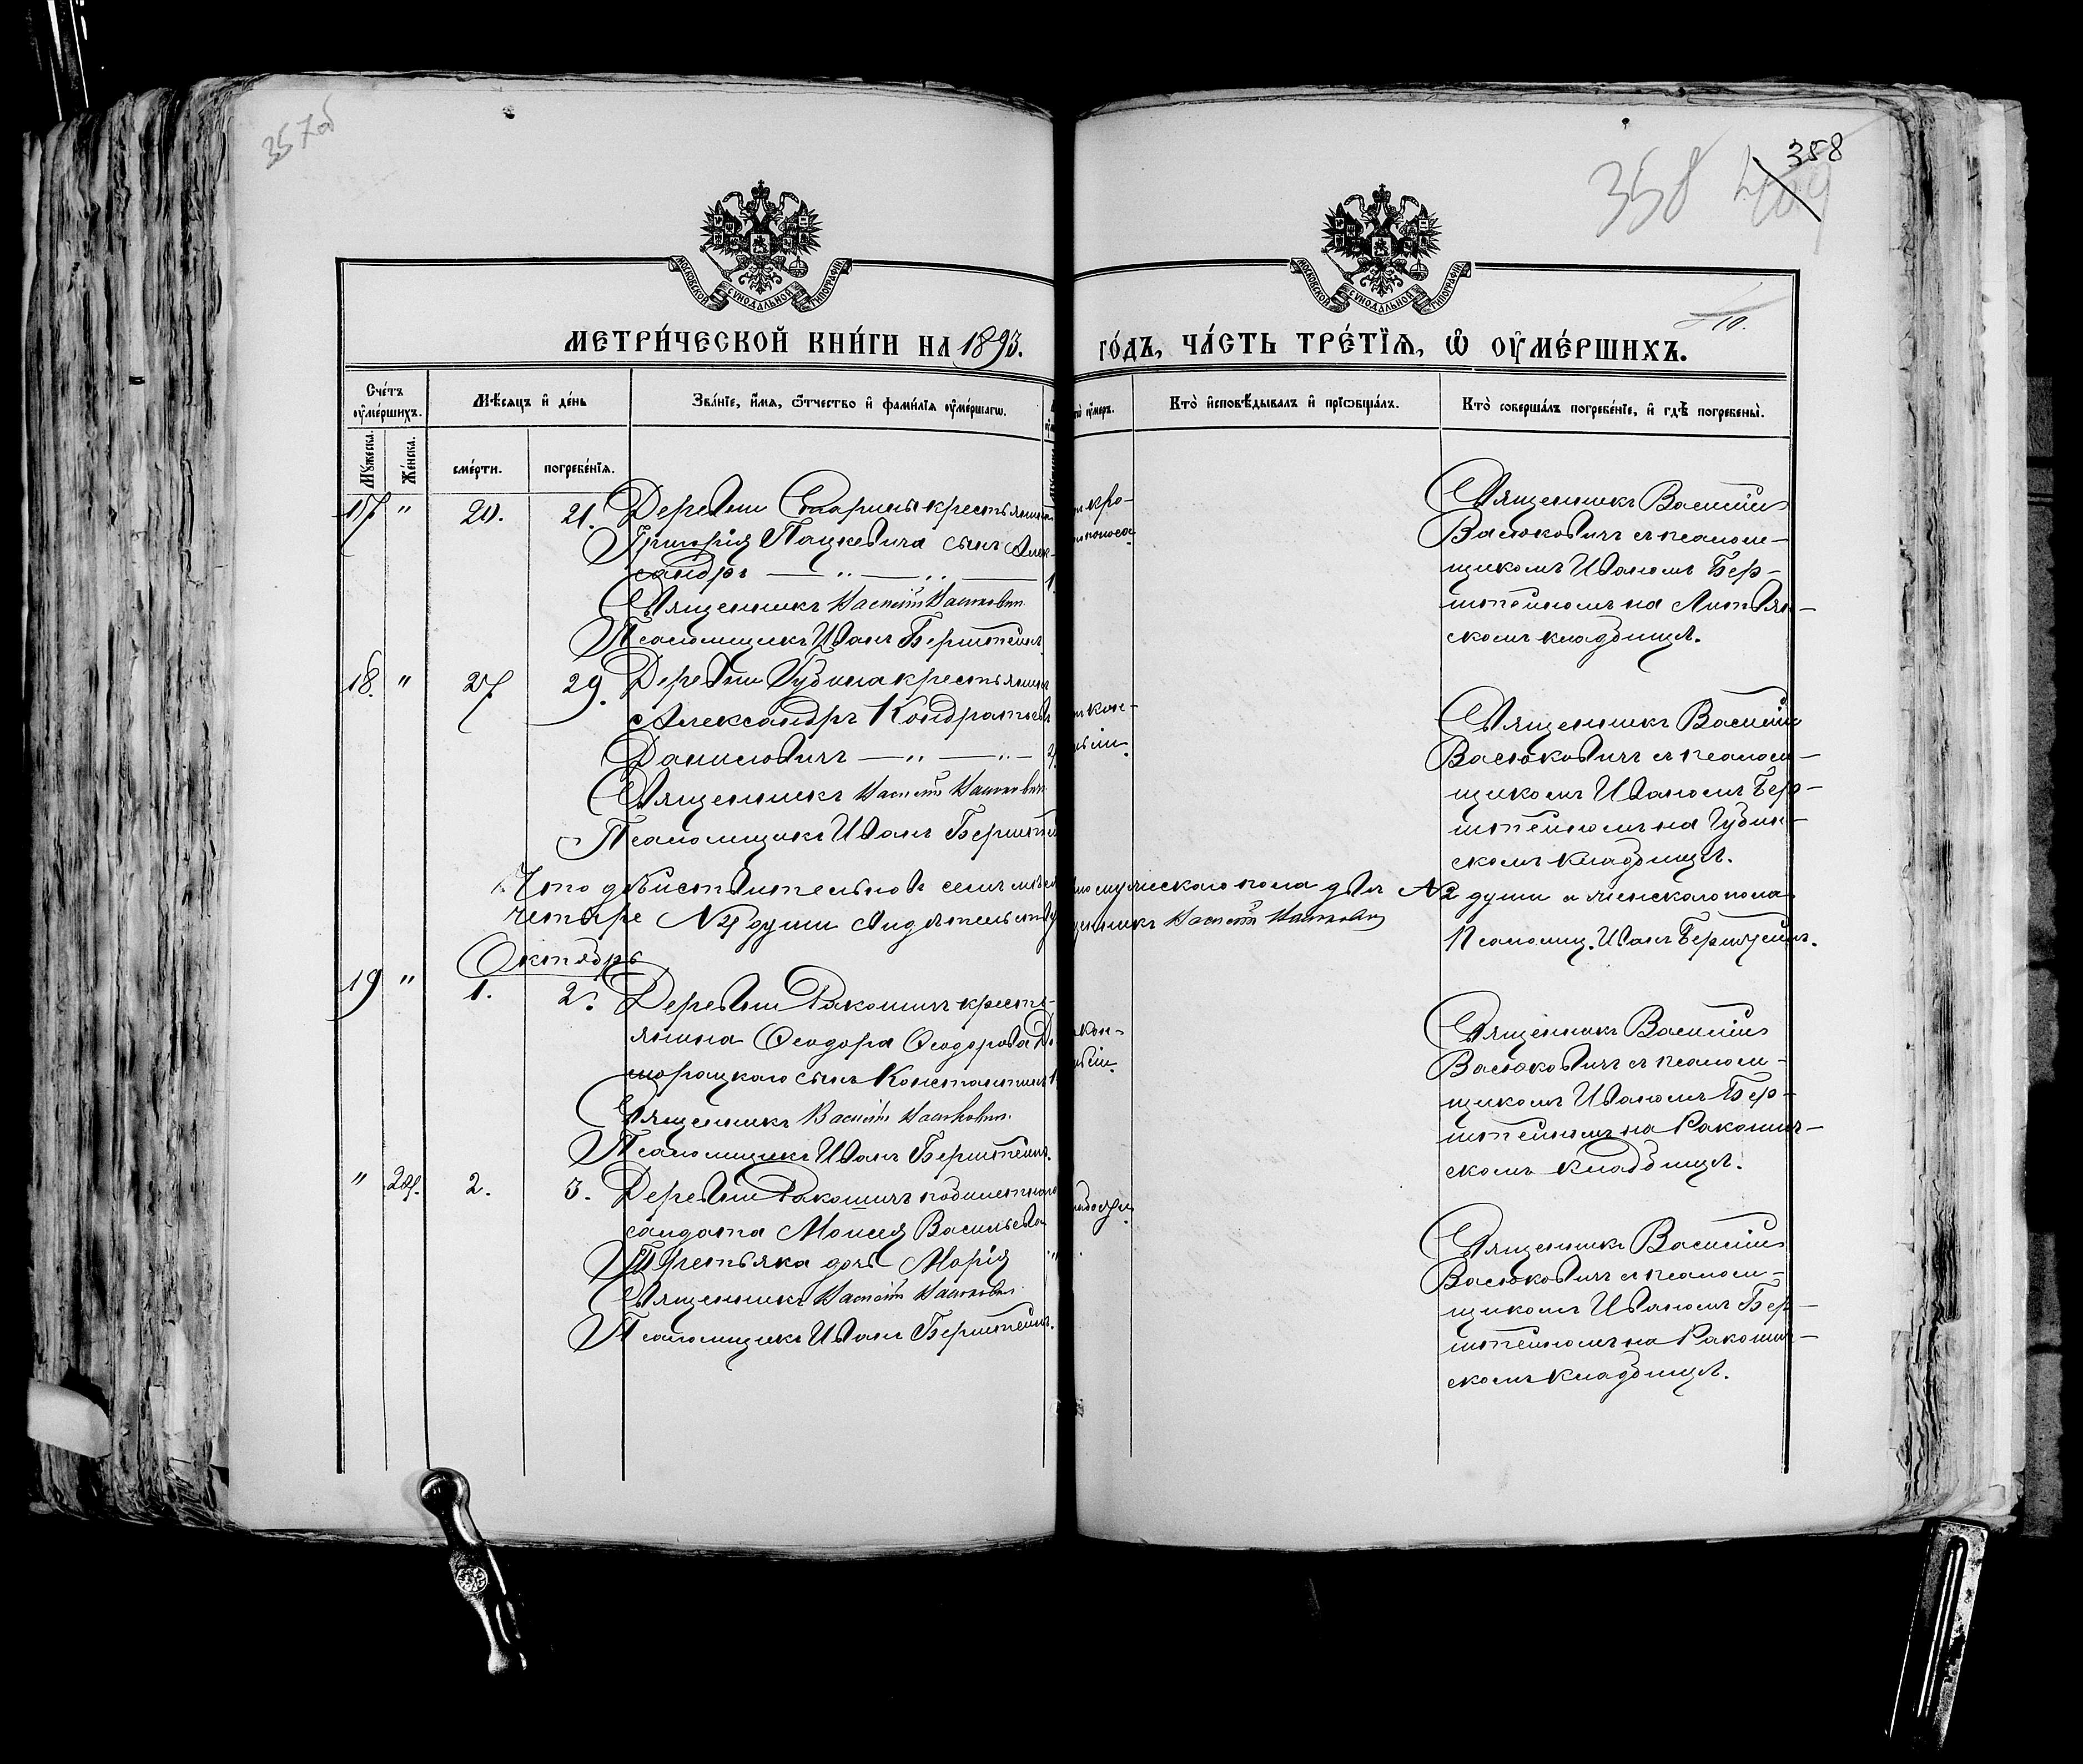 357об
358
358
409
МОСКОВСКОЙ СѴНОДАЛЬНОЙ ТИПОГРАФІИ
МОСКОВСКОЙ СѴНОДАЛЬНОЙ ТИПОГРАФІИ
МЕТРИ́ЧЕСКОЙ КНИ́ГИ НА 1893. ГО́ДЪ, ЧА́СТЬ ТРЕ́ТІѦ, Ѽ ОУ҆МЕ́РШИХЪ.
Сче́тъ оу҆ме́ршихъ.
Мꙋ́жеска.
Же́нска.
Мѣ́сѧцъ и҆ де́нь
сме́рти.
погребе́нїѧ.
Зва́нїе, и҆́мѧ, ѻ҆́тчество и҆ фами́лїѧ оу҆ме́ршагѡ.
оу҆́меръ.
Кто̀ и҆сповѣ́дывалъ и҆ прїѡбща́лъ.
Кто̀ соверша́лъ погребе́нїе, и҆ гдѣ̀ погребены̀.
17 " 20. 21. Деревни Старины крестьянина
Григорія Пацкевича сынъ Алек-
сандръ — " — " — 1.
Священникъ Василій Васюкович
Псаломщикъ Иванъ Берштейнъ.
кро-
поноса
Священникъ Василій
Васюковичъ съ псалом-
щикомъ Иваномъ Бер-
штейномъ на Литвян-
скомъ кладбищѣ.
18. " 27 29. Деревни Губина крестьянинъ
Александръ Кондратьевъ
Даниловичъ — " — " —
Священникъ Василій Васюкович
Псаломщикъ Иванъ Берштей
кон-
Священникъ Василій
Васюковичъ съ псалом-
щикомъ Иваномъ Бер-
штейномъ на Губин-
скомъ кладбищѣ.
Что дѣйствительно въ семъ мужескаго пола двѣ № 2 души а женскаго пола
четыре № 4 души Священникъ Василій Васюкович
Псаломщ. Иванъ Берштейнъ.
Октябрь
19 " 1. 2. Деревни Ракошичъ кресть-
янина Ѳеодора Ѳеодорова
сынъ Константинъ 1.
Священникъ Василій Васюкович
Псаломщикъ Иванъ Берштейнъ.
кон-
Священникъ Василій
Васюковичъ съ псалом-
щикомъ Иваномъ Бер-
штейномъ на Ракошич-
скомъ кладбищѣ.
" 24. 2. 3. Деревни Ракошичъ
солдата Моисея Васильева
Третьяка дочь Марія
Священникъ Василій Васюкович
Псаломщикъ Иванъ Берштейнъ.
Священникъ Василій
Васюковичъ съ псалом-
щикомъ Иваномъ Бер-
штейномъ на Ракошич-
скомъ кладбищѣ.